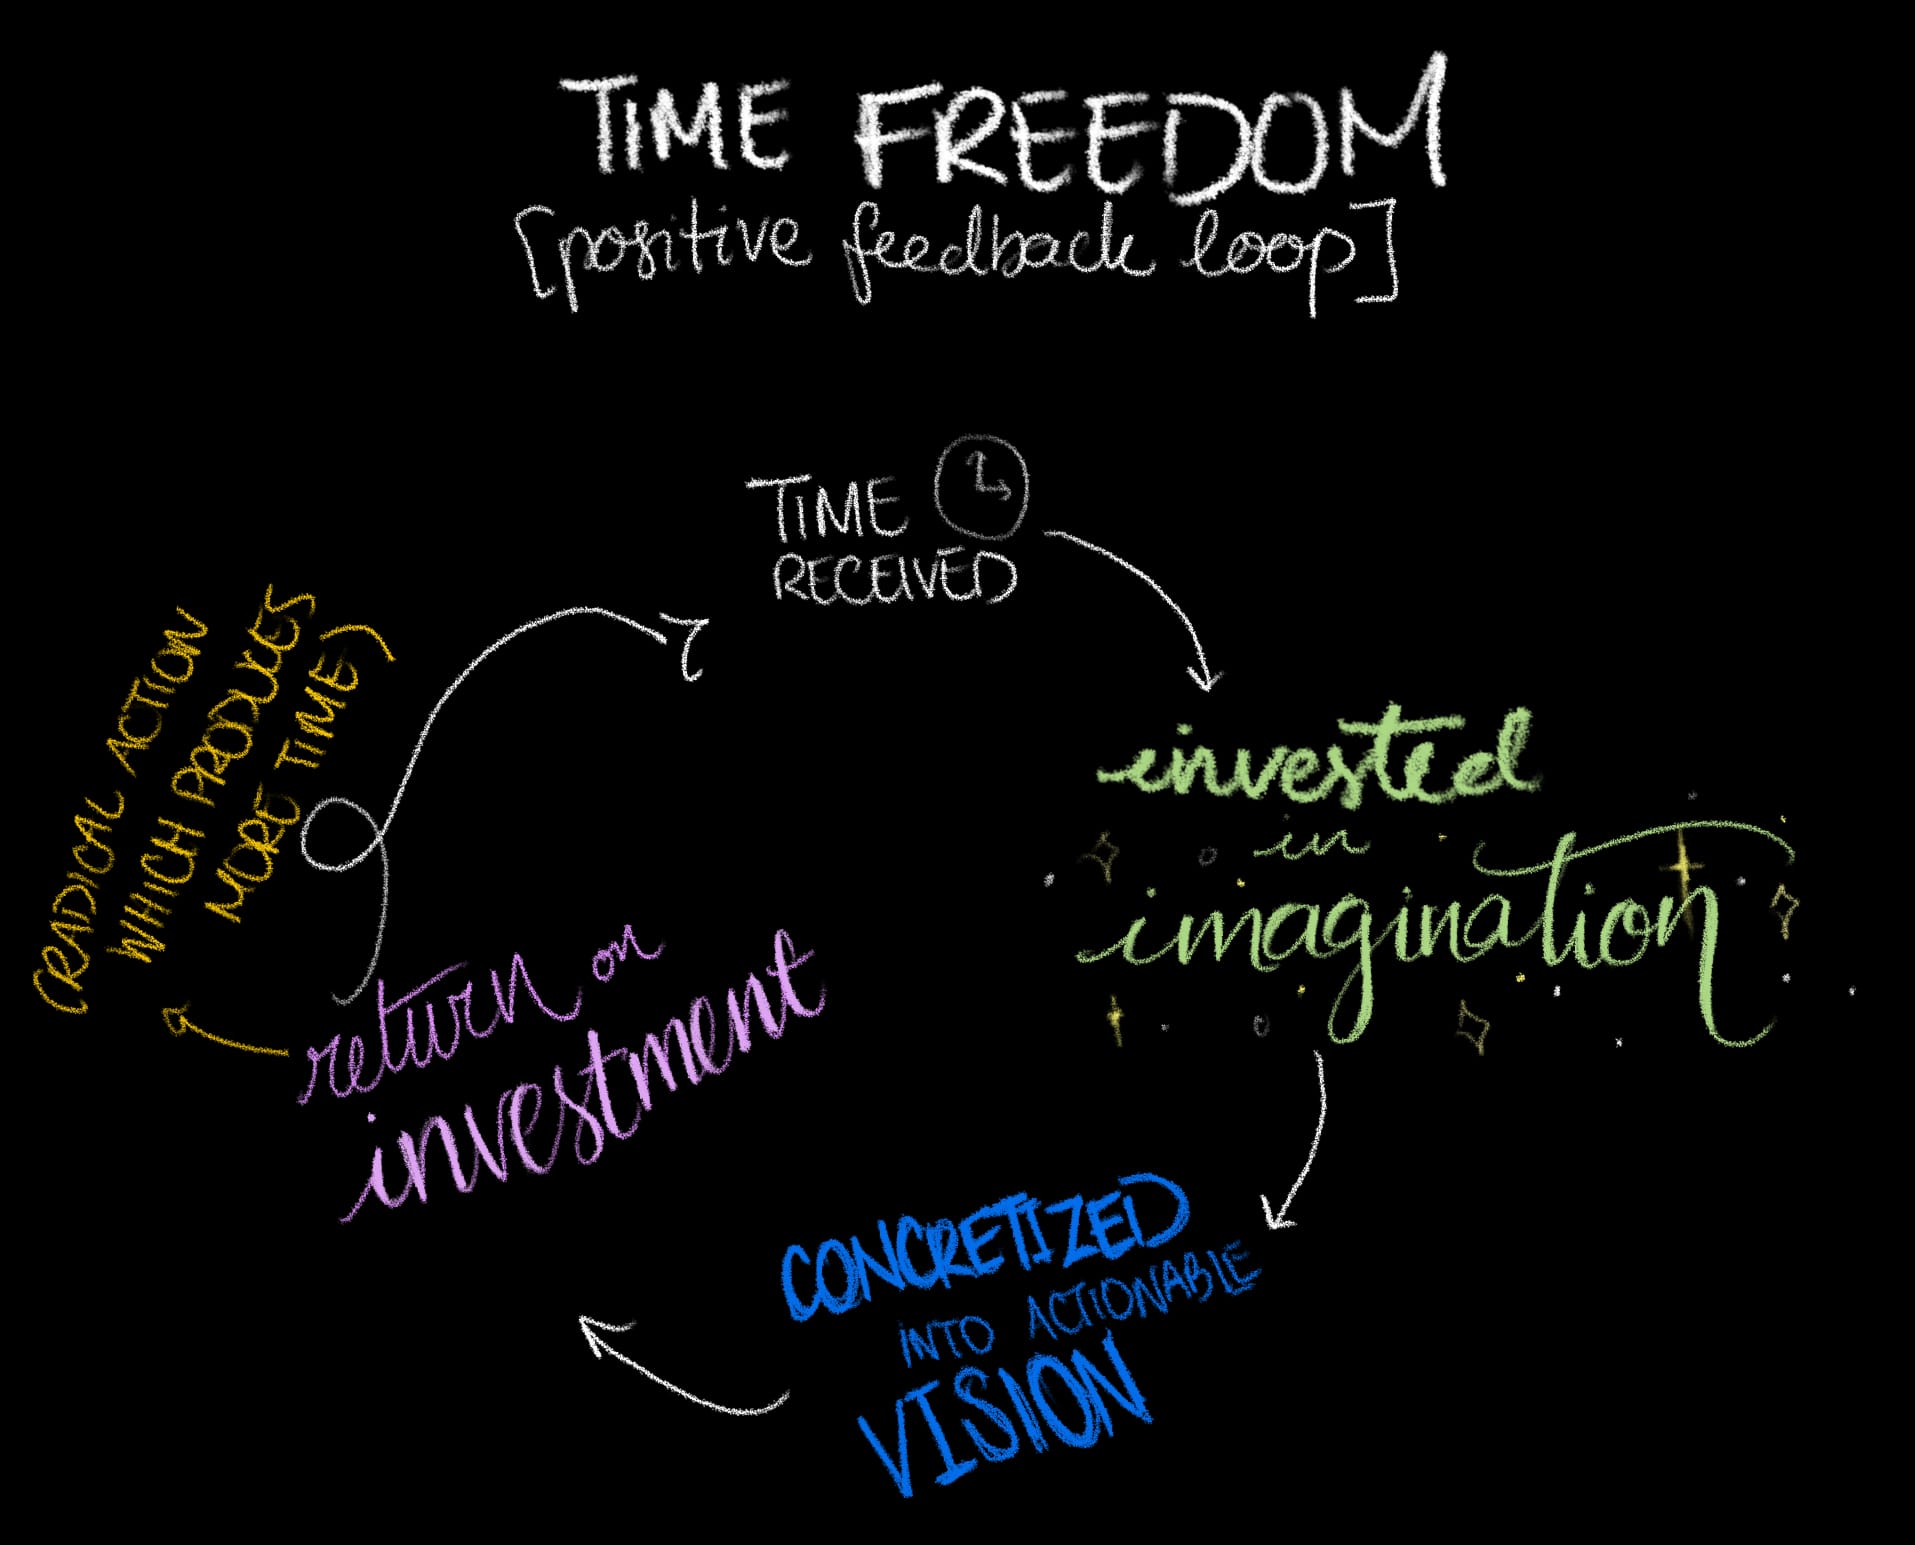 TIME FREEDOM
[positive feedback loop]
TIME
RECEIVED
invested
in
imagination
CONCRETIZED
INTO ACTIONABLE
VISION
return on
investment
(RADICAL ACTION
WHICH PRODUCES
MORE TIME)